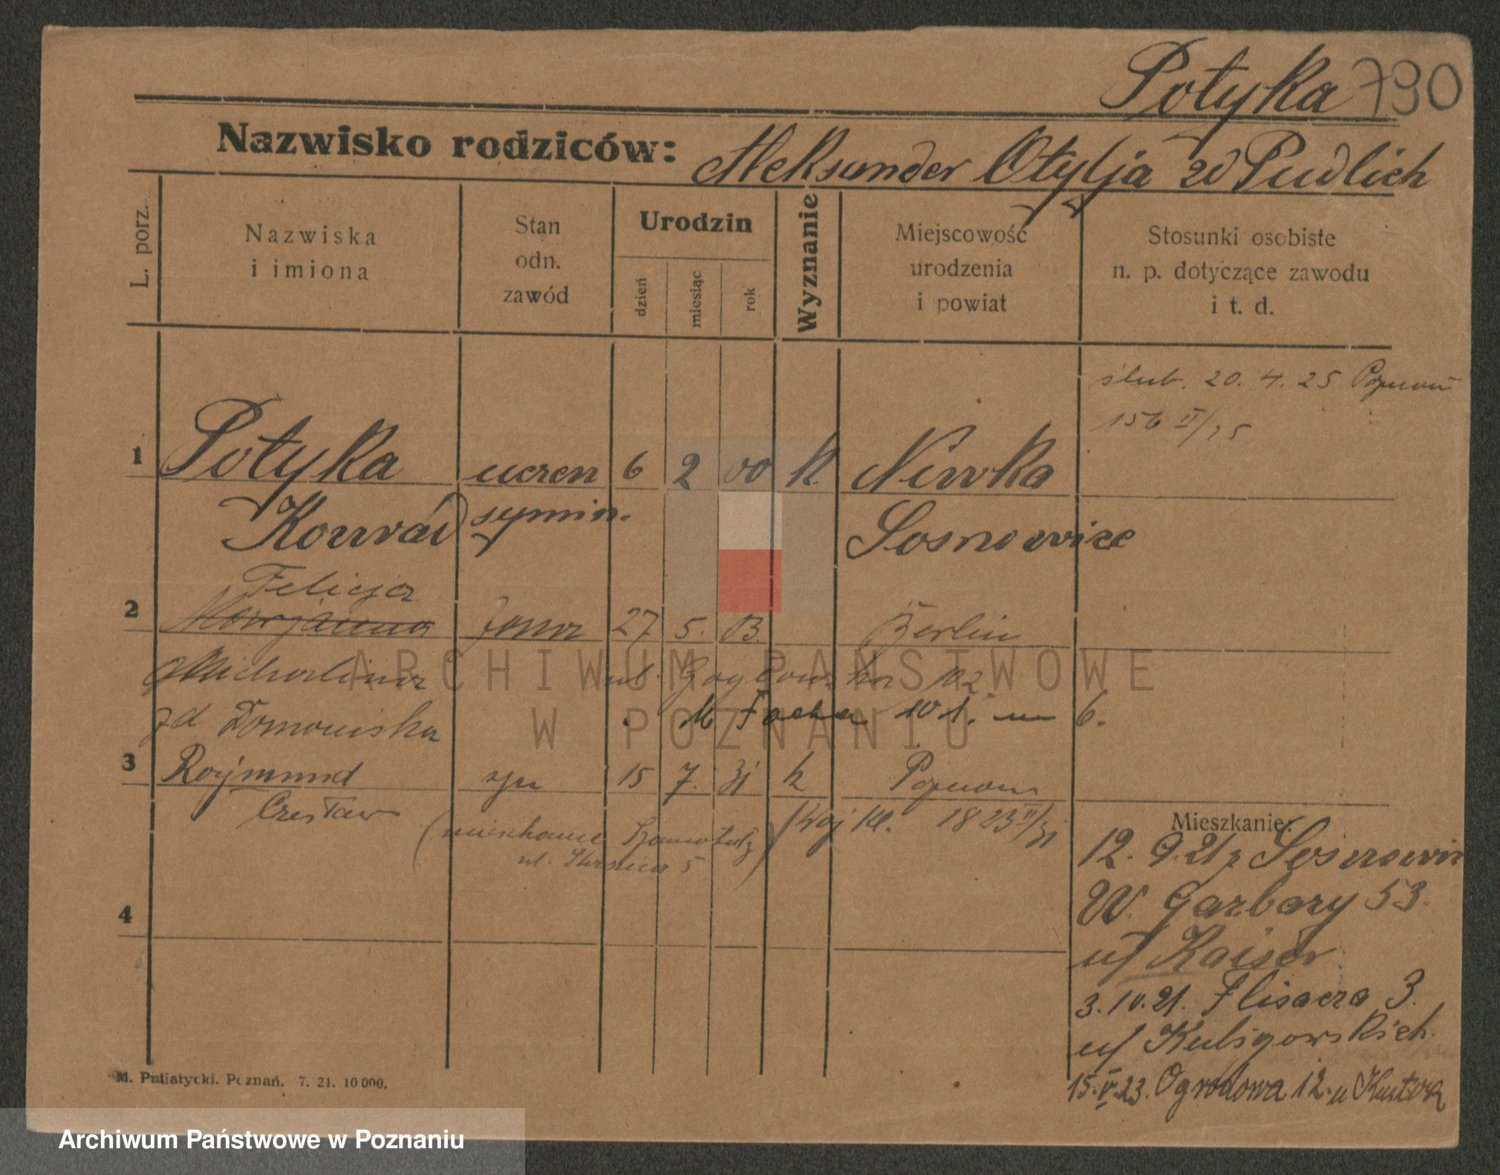 Potyka 790
Nazwisko rodziców: Aleksander Otylja zd Pudlich
L. porz.
Nazwiska
i imiona
Stan
odn.
zawód
Urodzin
dzień
miesiąc
rok
Wyznanie
Miejscowość
urodzenia
i powiat
Stosunki osobiste
n. p. dotyczące zawodu
i t. d.
ślub. 20. 4. 25 Poznań
156 II/25
1 Potyka uczen 6 2 00 k Niwka
Konrad symin. Sosnowice
Felicja
2 Marjanna żona 27 5. 03. Berlin
Michalina ul. 102
zd Tomowiska M Focha 101. m 6.
3 Rajmund syn 15 7. 31 k Poznań
Czesław Kraj Kl. 1823 II/31
(mieszkanie Szamotuły
ul. 5)
4
Mieszkanie:
12. 9. 21 z Sosnowic
W. Garbary 53.
u/ Kaiser
3. 10. 21. Flisacza 3.
u/ Kuligowskich
15. V. 23. Ogrodowa 12. u
M. Putiatycki. Poznań. 7. 21. 10 000.
ARCHIWUM PAŃSTWOWE
W POZNANIU
Archiwum Państwowe w Poznaniu